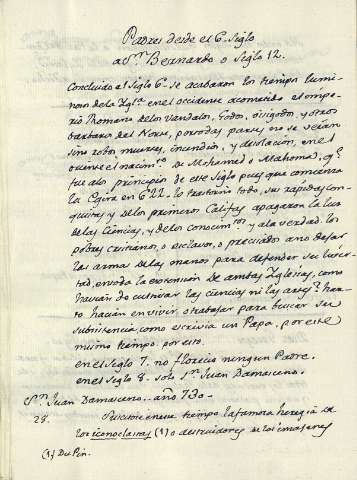 Padres desde el 6º Siglo
a Sn. Bernardo o Siglo 12.
Concluido el Siglo 6º se acabaron los tiempos lumi-
nosos de la Ygla. en el occidente acometido el impe-
rio Rhomano de los Vandalos, Godos, visigodos, y otros
barbaros del Norte, por todas partes no se veían
sino robos muertes, incendios, y desolacion, en el
oriente el nacimto. de Mohamed o Mahoma, qe.
fue a los principios de este Siglo pues que comienza
la Egira en 622. lo trastornó todo, sus rapidas con-
quistas y de los primeros Califas apagaron la luz
de las Ciencias, y de los conocimtos. y a la verdad los
pobres cristianos, o esclavos, o precisados a no dejar
las armas de las manos para defender su liber-
tad, en toda la extension de ambas Yglesias, como
havian de cultivar las ciencias ni las artes? harto
hacian en vivir, o trabajar para buscar su
subsistencia, como escrivia un Papa, por este
mismo tiempo. por esto.
en el Siglo 7. no florecio ningun Padre.
en el Siglo 8. solo Sn. Juan Damasceno.
Sn. Juan Damasceno. año 730.
28. tiempo la famosa heregia de
los iconoclastas (1) o destruidores de las imagenes
(1) Du Pin.